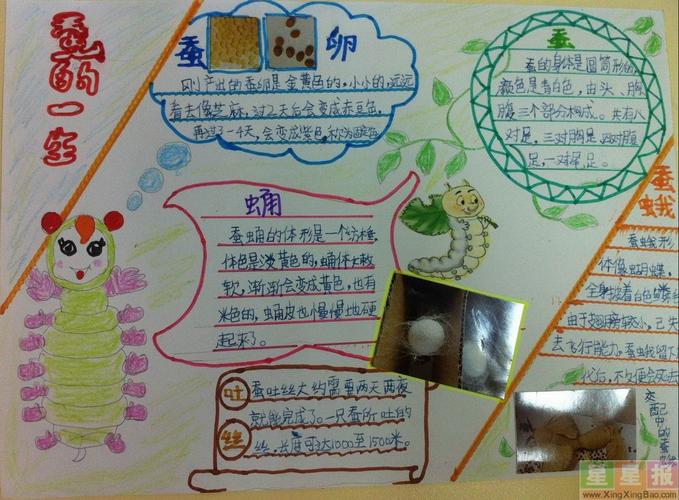 蚕的一生
蚕 卵
刚产出的蚕卵是金黄色的,小小的,远远
看去像芝麻,过2天后会变成赤豆色,
再过3-4天,会变成紫色,称为固定色
蚕
蚕的身体是圆筒形的,
颜色是青白色,由头、胸
腹三个部分构成。共有八
对足,三对胸足,四对腹
足,一对尾足。
蛹
蚕蛹的体形是一个纺锤,
体色是淡黄色的,蛹体比较
软,渐渐会变成黄色,也有
米色的,蛹皮也慢慢地硬
起来了。
蚕蛾
蚕蛾形
体像蝴蝶,
全身披着白色鳞毛
由于翅膀较小,已失
去飞行能力。蚕蛾留下
后,不久便会死去
吐丝
蚕吐丝大约需要两天两夜
就能完成了。一只蚕所吐的
丝,长度可达1000至1500米。
交配中的蚕蛾
星星报
www.XingXingBao.com